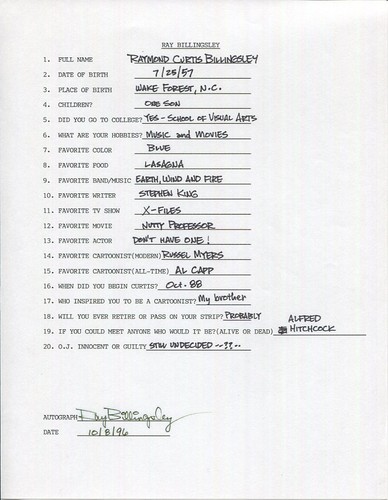 RAY BILLINGSLEY
1. FULL NAME RAYMOND CURTIS BILLINGSLEY
2. DATE OF BIRTH 7/25/57
3. PLACE OF BIRTH WAKE FOREST, N.C.
4. CHILDREN? ONE SON
5. DID YOU GO TO COLLEGE? YES - SCHOOL OF VISUAL ARTS
6. WHAT ARE YOUR HOBBIES? MUSIC and MOVIES
7. FAVORITE COLOR BLUE
8. FAVORITE FOOD LASAGNA
9. FAVORITE BAND/MUSIC EARTH, WIND AND FIRE
10. FAVORITE WRITER STEPHEN KING
11. FAVORITE TV SHOW X-FILES
12. FAVORITE MOVIE NUTTY PROFESSOR
13. FAVORITE ACTOR DON'T HAVE ONE!
14. FAVORITE CARTOONIST(MODERN) RUSSEL MYERS
15. FAVORITE CARTOONIST(ALL-TIME) AL CAPP
16. WHEN DID YOU BEGIN CURTIS? Oct. 88
17. WHO INSPIRED YOU TO BE A CARTOONIST? My brother
18. WILL YOU EVER RETIRE OR PASS ON YOUR STRIP? PROBABLY
19. IF YOU COULD MEET ANYONE WHO WOULD IT BE?(ALIVE OR DEAD) ALFRED HITCHCOCK
20. O.J. INNOCENT OR GUILTY STILL UNDECIDED -??..
AUTOGRAPH Ray Billingsley
DATE 10/8/96